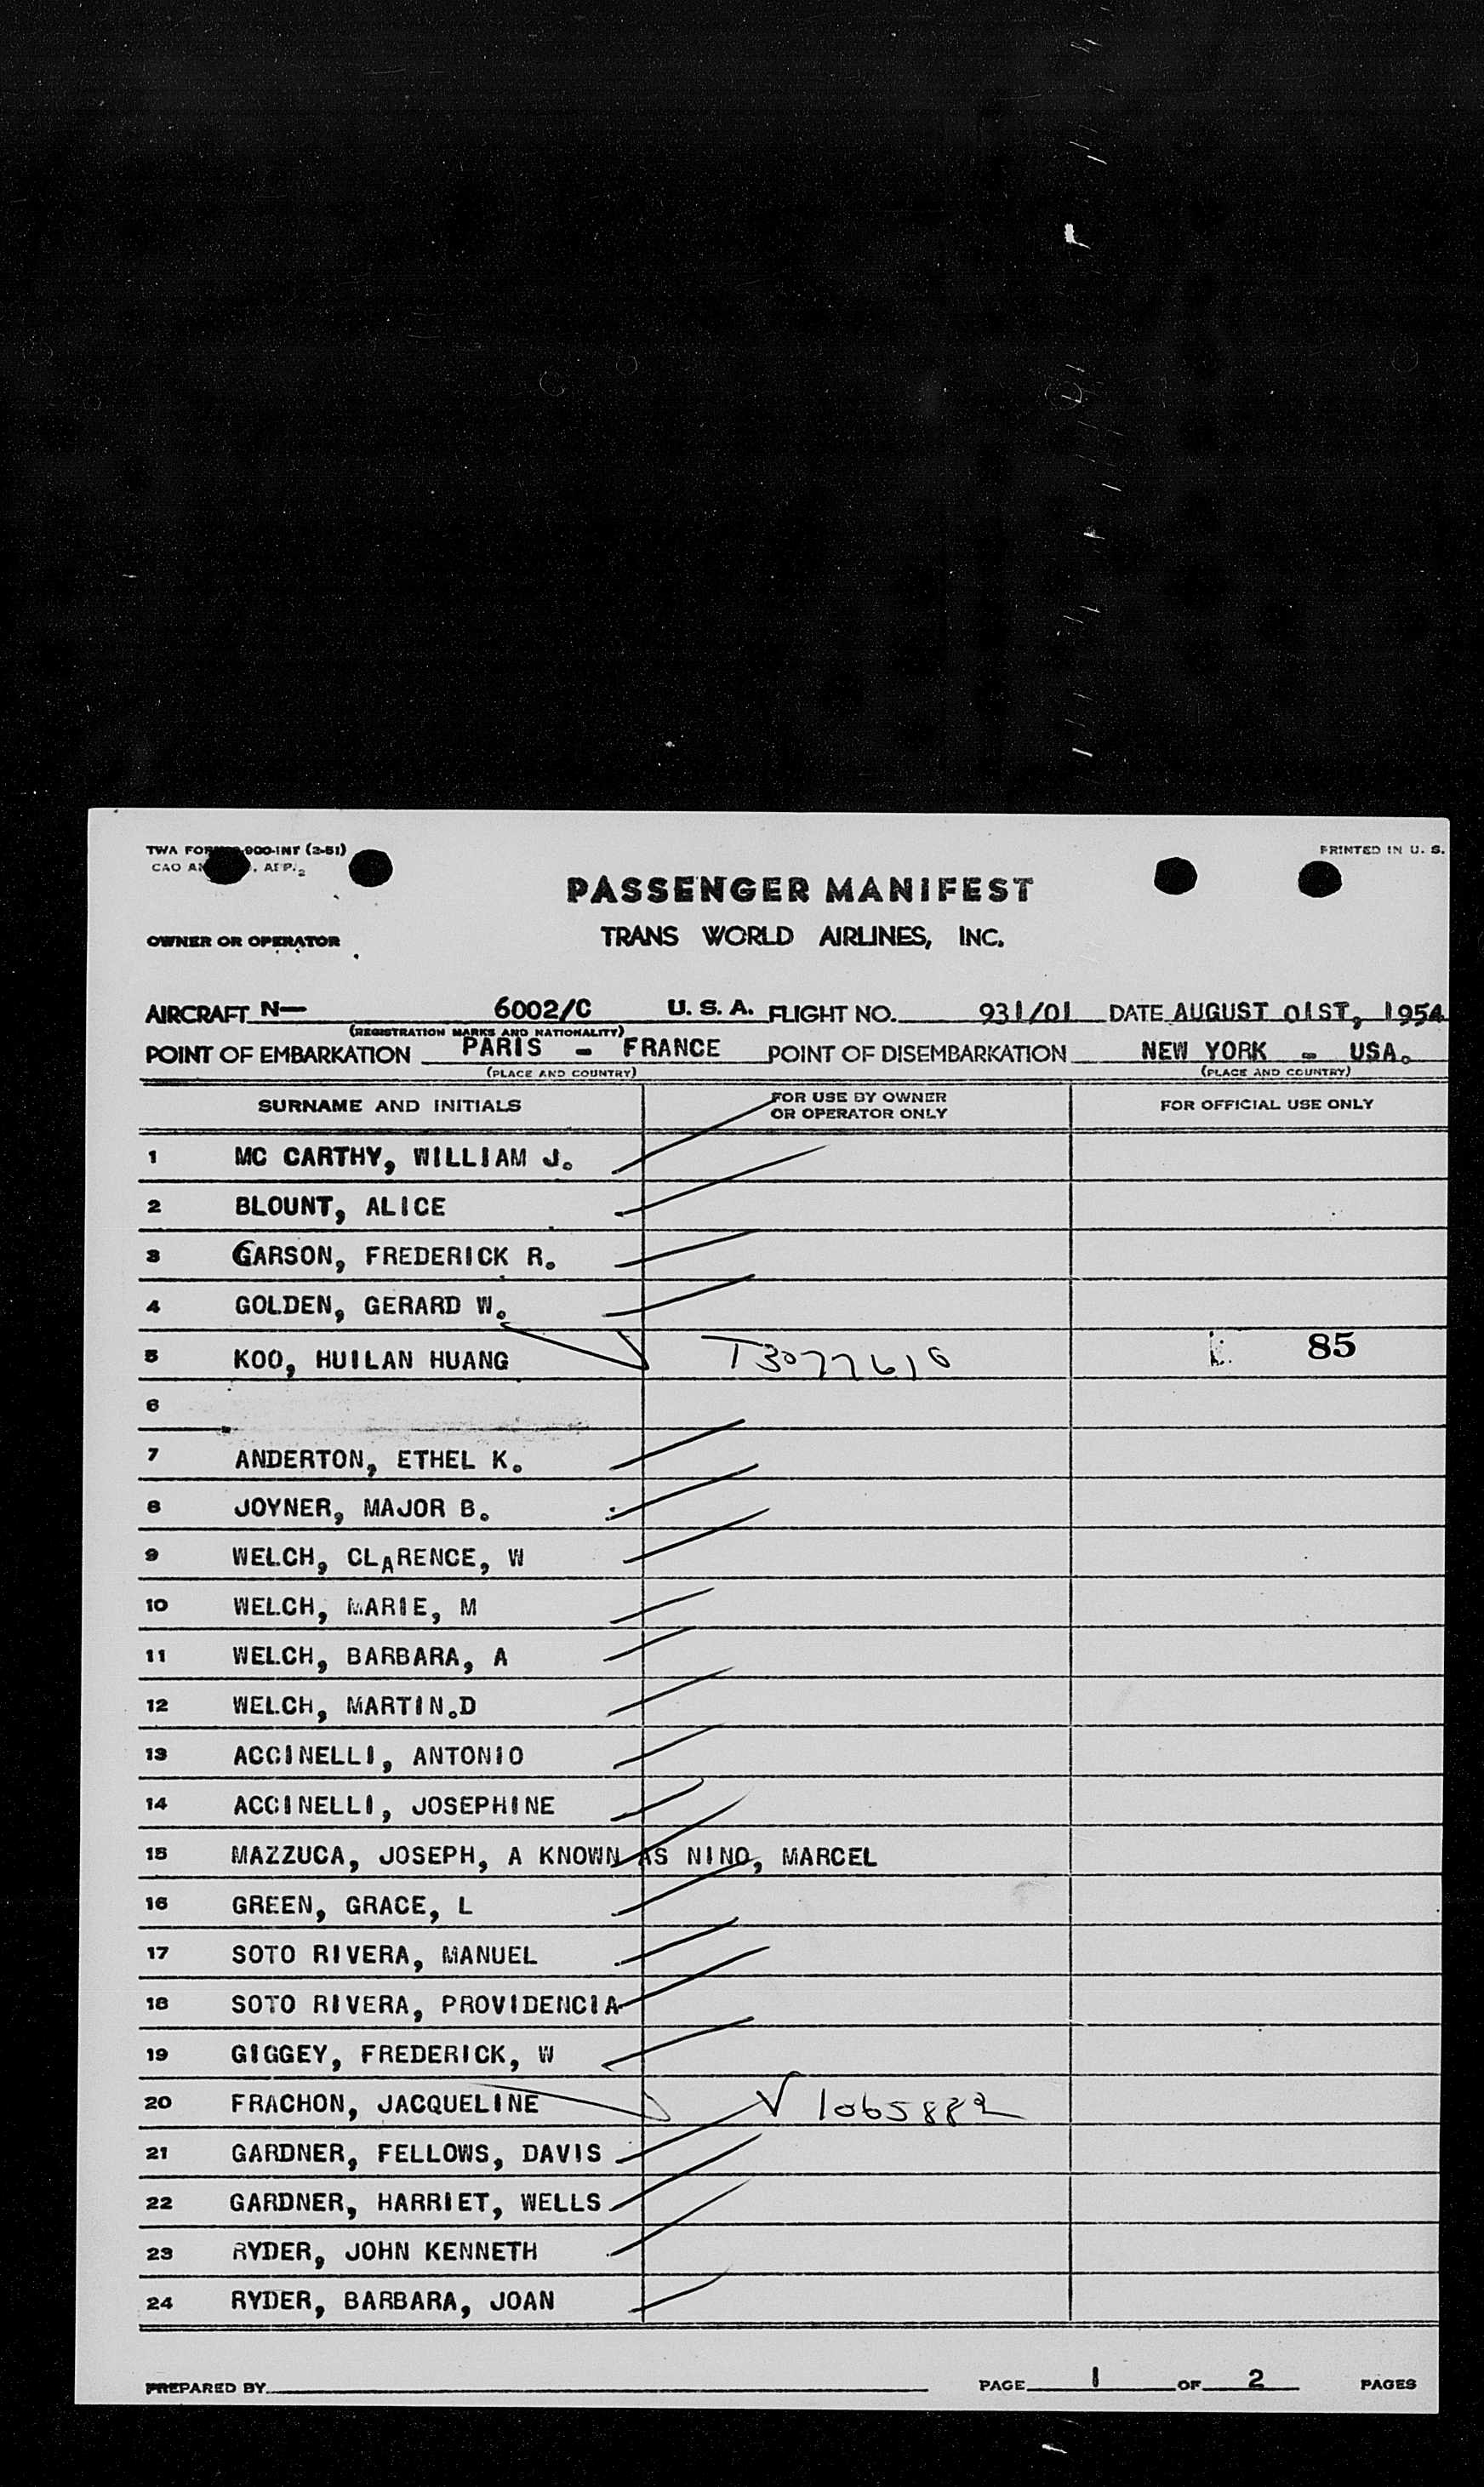 TWA FORM 900-INT (2-51)
PRINTED IN U. S.
CAO AN . AFP. 2
PASSENGER MANIFEST
OWNER OR OPERATOR
TRANS WORLD AIRLINES, INC.
AIRCRAFT N— 6002/C U. S. A. FLIGHT NO. 931/01 DATE AUGUST 01ST, 1954
(REGISTRATION MARKS AND NATIONALITY)
POINT OF EMBARKATION PARIS - FRANCE POINT OF DISEMBARKATION NEW YORK - USA.
(PLACE AND COUNTRY) (PLACE AND COUNTRY)
SURNAME AND INITIALS FOR USE BY OWNER OR OPERATOR ONLY FOR OFFICIAL USE ONLY
1 MC CARTHY, WILLIAM J.
2 BLOUNT, ALICE
3 GARSON, FREDERICK R.
4 GOLDEN, GERARD W.
5 KOO, HUILAN HUANG T3077616 85
6
7 ANDERTON, ETHEL K.
8 JOYNER, MAJOR B.
9 WELCH, CLARENCE, W
10 WELCH, MARIE, M
11 WELCH, BARBARA, A
12 WELCH, MARTIN.D
13 ACCINELLI, ANTONIO
14 ACCINELLI, JOSEPHINE
15 MAZZUCA, JOSEPH, A KNOWN AS NINO, MARCEL
16 GREEN, GRACE, L
17 SOTO RIVERA, MANUEL
18 SOTO RIVERA, PROVIDENCIA
19 GIGGEY, FREDERICK, W
20 FRACHON, JACQUELINE V 1065882
21 GARDNER, FELLOWS, DAVIS
22 GARDNER, HARRIET, WELLS
23 RYDER, JOHN KENNETH
24 RYDER, BARBARA, JOAN
PREPARED BY PAGE 1 OF 2 PAGES